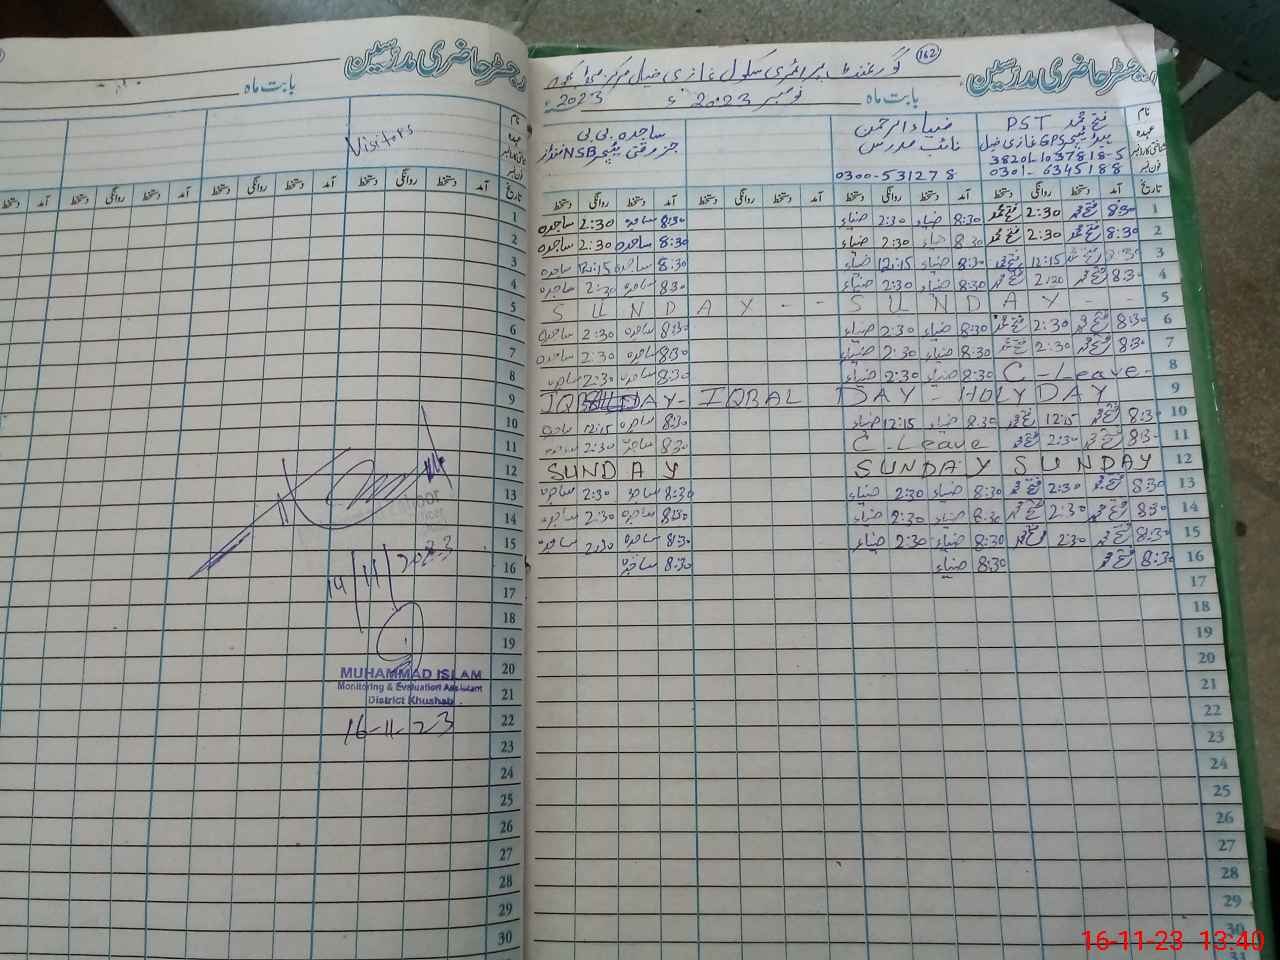 رجسٹر حاضری مدرسین
بابت ماہ
Visitors
نام
عہدہ
فون نمبر
تاریخ
آمد دستخط روانگی دستخط آمد دستخط روانگی دستخط آمد
1
2
3
4
5
6
7
8
9
10
11
12
13
14
15
16
17
18
19
20
21
22
23
24
25
26
27
28
29
30
14/11/2023
MUHAMMAD ISLAM
Monitoring & Evaluation Assistant
District Khushab
16-11-23
162
رجسٹر حاضری مدرسین
گورنمنٹ پرائمری سکول غازی خیل مرکز
بابت ماہ نومبر 2023ء 2023
نام
عہدہ
شناختی کارڈ نمبر
فون نمبر
فتح محمد PST
GPS غازی خیل
38201-1037818-5
0301-6345188
ضیاء الرحمن
نائب مدرس
0300-531278
ساجدہ بی بی
جز وقتی ٹیچر NSB
تاریخ آمد دستخط روانگی دستخط آمد دستخط روانگی دستخط آمد دستخط روانگی دستخط آمد دستخط روانگی دستخط
1 8:30 فتح محمد 2:30 فتح محمد 8:30 ضیاء 2:30 ضیاء 8:30 ساجدہ 2:30 ساجدہ
2 8:30 فتح محمد 2:30 فتح محمد 8:30 ضیاء 2:30 ضیاء 8:30 ساجدہ 2:30 ساجدہ
3 8:30 فتح محمد 12:15 فتح محمد 8:30 ضیاء 12:15 ضیاء 8:30 ساجدہ 12:15 ساجدہ
4 8:30 فتح محمد 2:30 فتح محمد 8:30 ضیاء 2:30 ضیاء 8:30 ساجدہ 2:30 ساجدہ
S U N D A Y - - S U N D A Y - - 5
6 8:30 فتح محمد 2:30 فتح محمد 8:30 ضیاء 2:30 ضیاء 8:30 ساجدہ 2:30 ساجدہ
7 8:30 فتح محمد 2:30 فتح محمد 8:30 ضیاء 2:30 ضیاء 8:30 ساجدہ 2:30 ساجدہ
8 C-Leave- 8:30 ضیاء 2:30 ضیاء 8:30 ساجدہ 2:30 ساجدہ
IQBAL DAY- IQBAL DAY - HOLYDAY 9
10 8:30 فتح محمد 12:15 فتح محمد 8:30 ضیاء 12:15 ضیاء 8:30 ساجدہ 12:15 ساجدہ
11 8:30 فتح محمد 2:30 فتح محمد C-Leave 8:30 ساجدہ 2:30 ساجدہ
SUNDAY SUNDAY SUNDAY 12
13 8:30 فتح محمد 2:30 فتح محمد 8:30 ضیاء 2:30 ضیاء 8:30 ساجدہ 2:30 ساجدہ
14 8:30 فتح محمد 2:30 فتح محمد 8:30 ضیاء 2:30 ضیاء 8:30 ساجدہ 2:30 ساجدہ
15 8:30 فتح محمد 2:30 فتح محمد 8:30 ضیاء 2:30 ضیاء 8:30 ساجدہ 2:30 ساجدہ
16 8:30 فتح محمد 8:30 ضیاء 8:30 ساجدہ
17
18
19
20
21
22
23
24
25
26
27
28
29
30
31
16-11-23 13:40